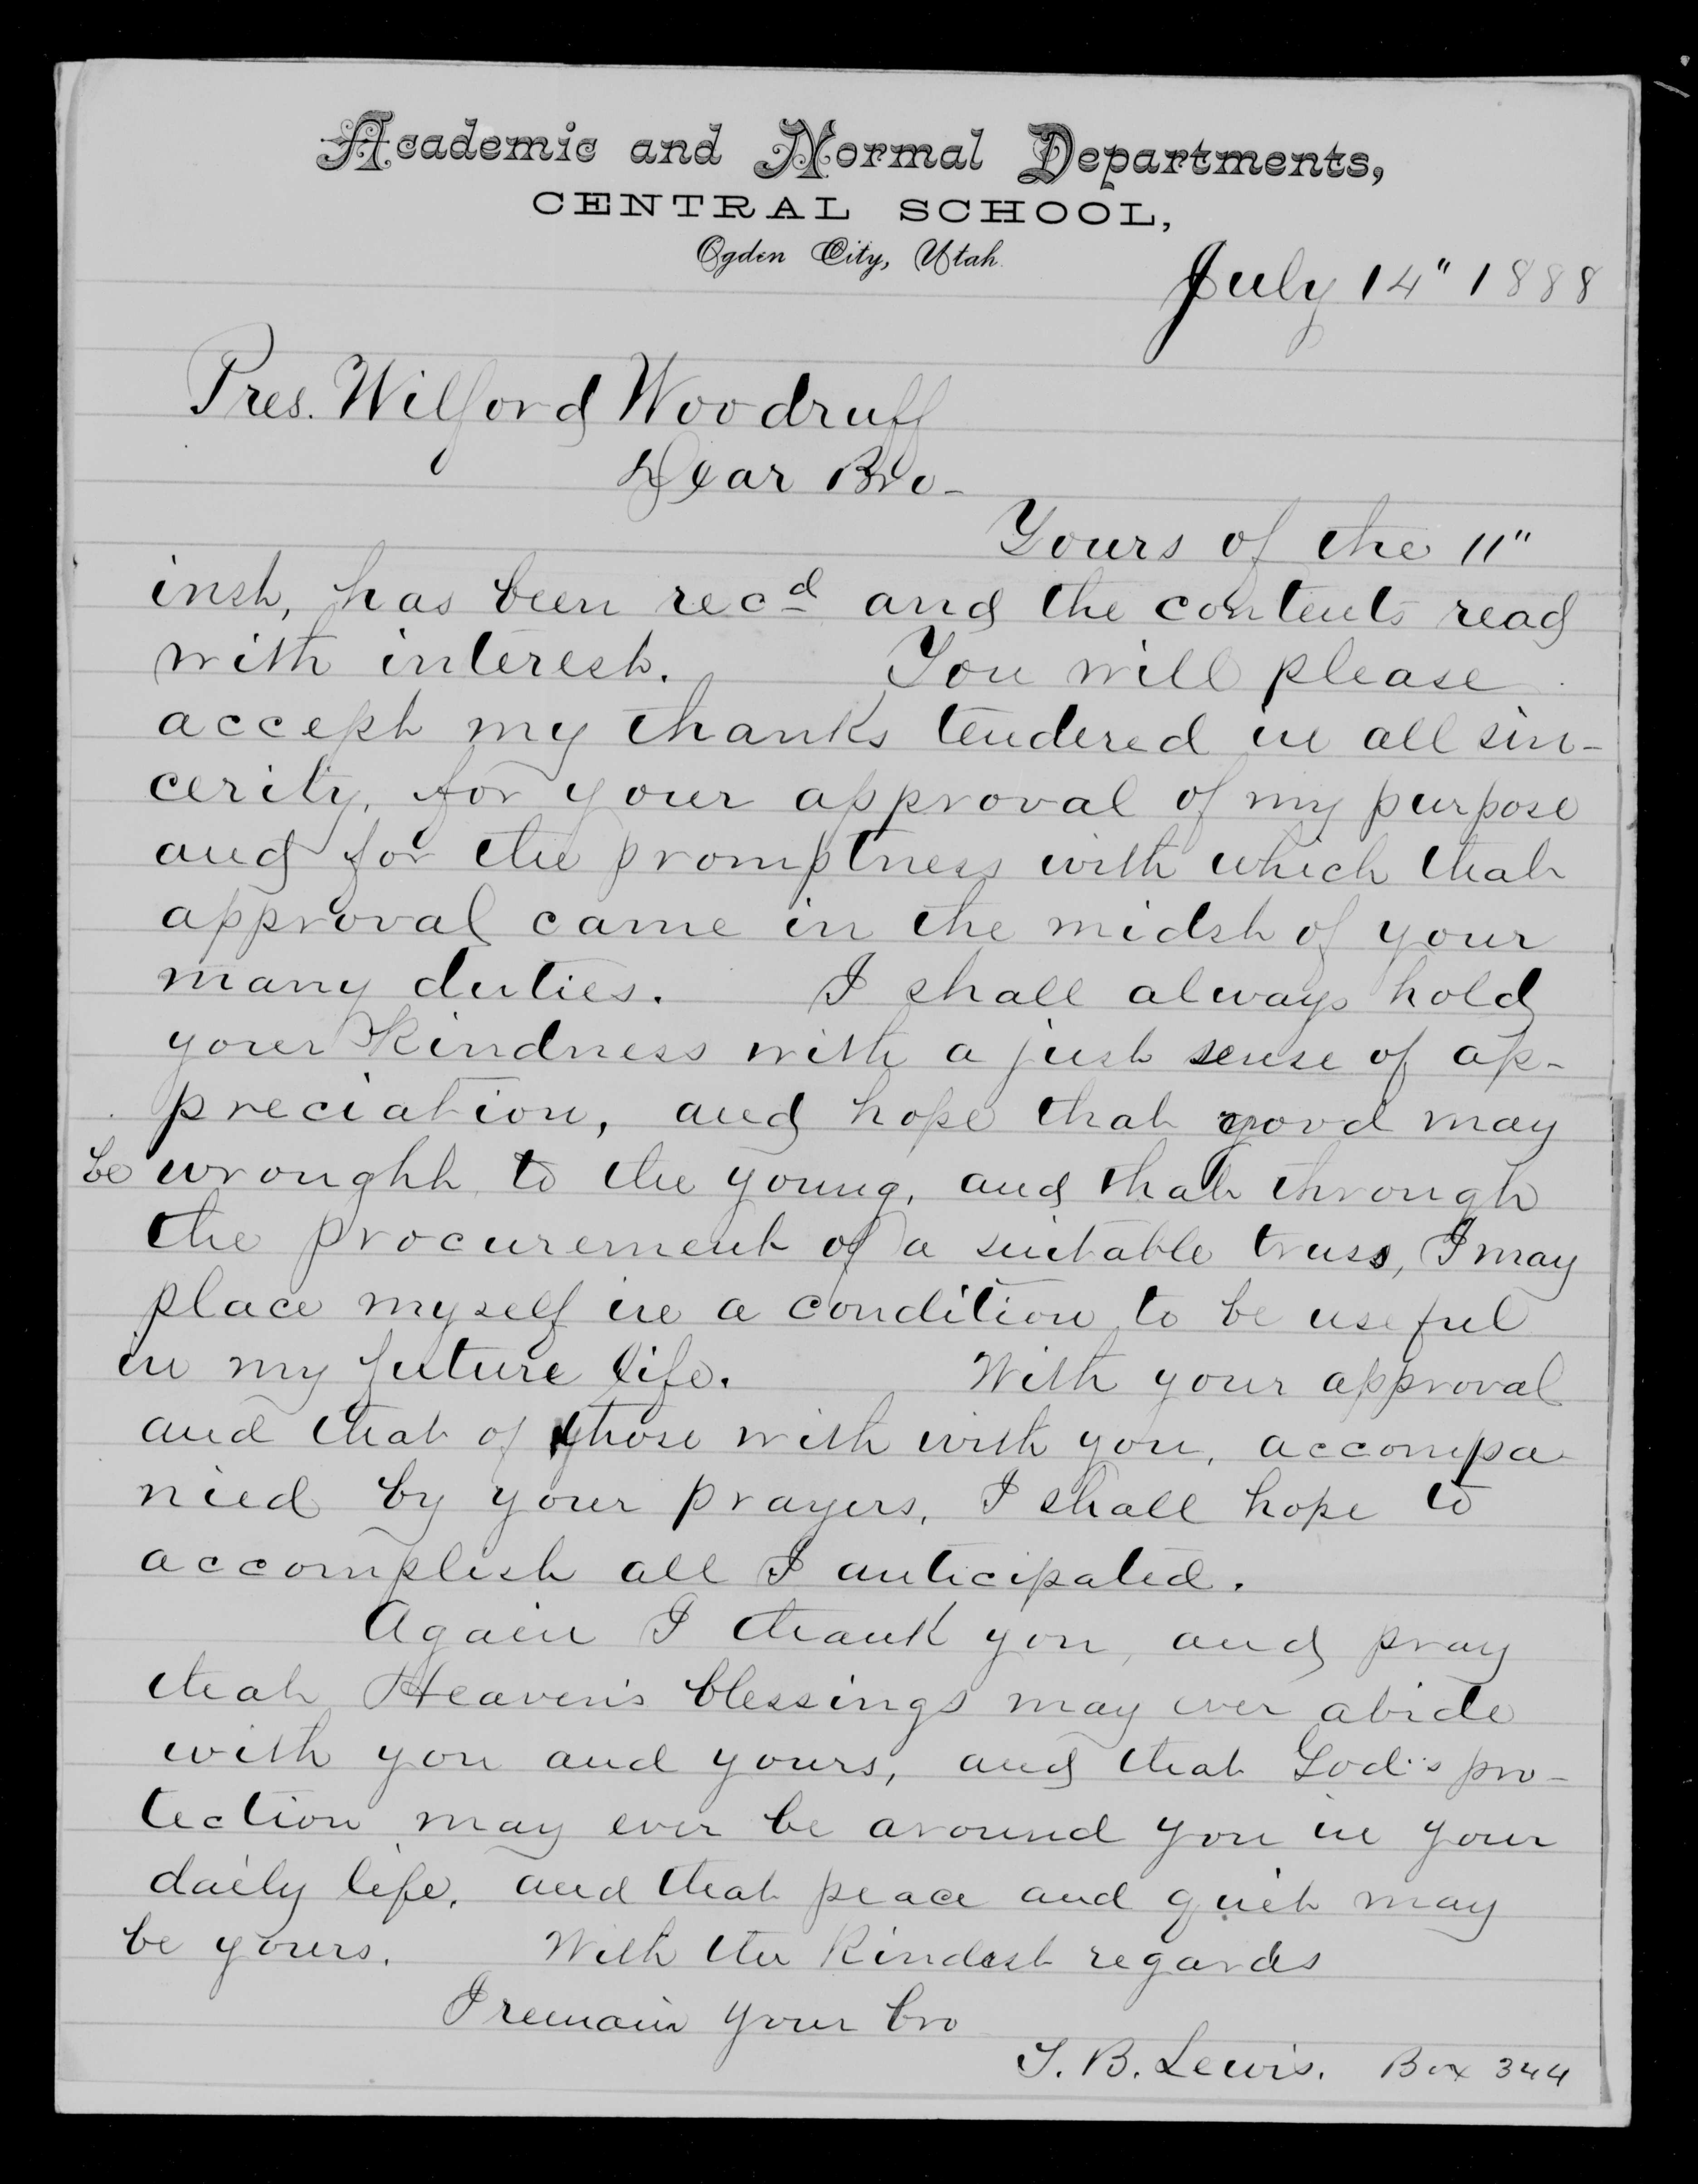 Academic and Normal Departments,
CENTRAL SCHOOL,
Ogden City, Utah.
July 14" 1888
Pres. Wilford Woodruff
Dear Bro-
Yours of the 11"
inst, has been recd and the contents read
with interest. You will please
accept my thanks tendered in all sin-
cerity, for your approval of my purpose
and for the promptness with which that
approval came in the midst of your
many duties. I shall always hold
your kindness with a just sense of ap-
preciation, and hope that good may
be wrought to the young, and that through
the procurement of a suitable truss, I may
place myself in a condition to be useful
in my future life. With your approval
and that of those with with you, accompa
nied by your prayers, I shall hope to
accomplish all I anticipated.
Again I thank you, and pray
that Heaven's blessings may ever abide
with you and yours, and that God's pro-
tection may ever be around you in your
daily life, and that peace and quiet may
be yours. With the kindest regards
I remain your bro
T. B. Lewis. Box 344